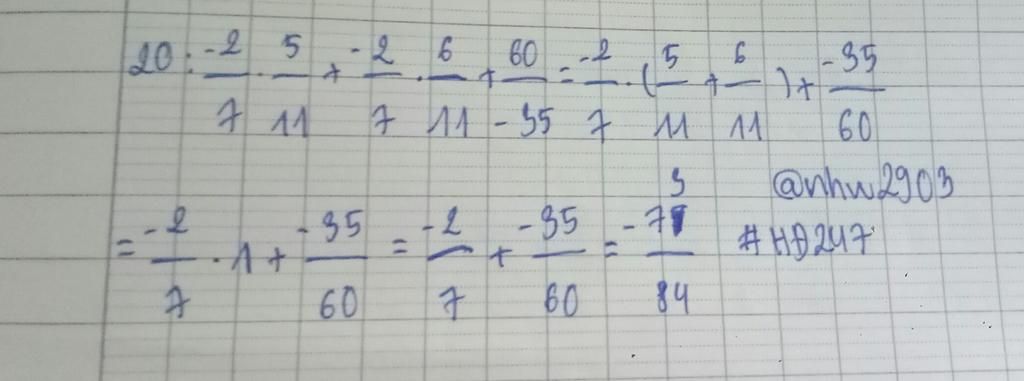 20: -2/7 . 5/11 + -2/7 . 6/11 + 60/-35 = -2/7 . (5/11 + 6/11) + -35/60
@nhu2903
= -2/7 . 1 + -35/60 = -2/7 + -35/60 = -73/84 #HĐ247